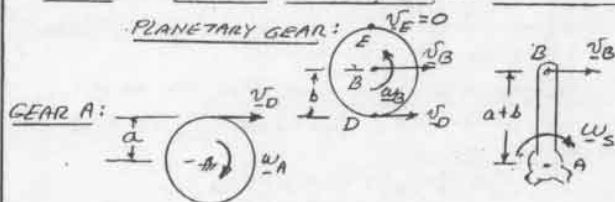 PLANETARY GEAR:
v_E = 0
E
v_B
B
b
ω_B
D
v_D
GEAR A:
a
v_D
ω_A
B
v_B
a+b
ω_S
A